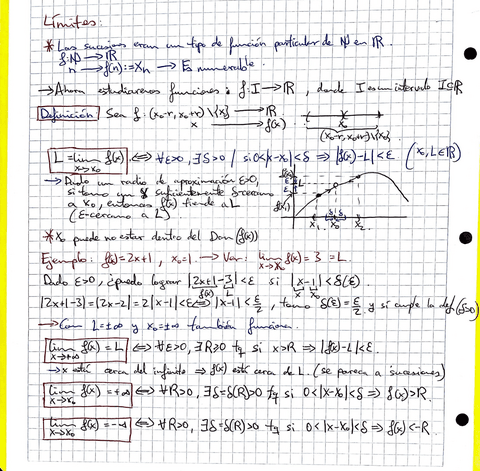 Límites:
* Las sucesiones eran un tipo de función particular de ℕ en ℝ.
f:ℕ → ℝ
n → f(n):=Xn → Es numerable.
→ Ahora estudiaremos funciones f:I→ℝ, donde I es un intervalo I⊆ℝ
Definición Sea f:(x₀-r, x₀+r)\{x₀} → ℝ
x → f(x)
x₀
(x₀-r, x₀+r)\{x₀}
L = lim x→x₀ f(x) ⇔ ∀ε>0, ∃δ>0 / si 0<|x-x₀|<δ ⇒ |f(x)-L|<ε (x₀, L∈ℝ)
→ Dado un radio de aproximación ε>0,
si tomo un x suficientemente δ-cercano
a x₀, entonces f(x) tiende a L
(ε-cercano a L)
L
f(x₁)
x₁ x₀ x₂
* x₀ puede no estar dentro del Dom(f(x))
Ejemplo: f(x)=2x+1, x₀=1. → Ver: lim x→x₀ f(x)=3=L.
Dado ε>0, ¿puedo lograr |2x+1-3|<ε si |x-1|<δ(ε)
f(x) L x x₀
|2x+1-3|=|2x-2|=2|x-1|<ε ⇔ |x-1|<ε/2, tomo δ(ε)=ε/2 y si cumple la def (δ>0)
→ Con L=±∞ y x₀=±∞ también funciona.
lim x→+∞ f(x)=L ⇔ ∀ε>0, ∃R>0 tq si x>R ⇒ |f(x)-L|<ε.
→ x está cerca del infinito ⇒ f(x) está cerca de L. (se parece a sucesiones)
lim x→x₀ f(x)=+∞ ⇔ ∀R>0, ∃δ=δ(R)>0 tq si 0<|x-x₀|<δ ⇒ f(x)>R.
lim x→x₀ f(x)=-∞ ⇔ ∀R>0, ∃δ=δ(R)>0 tq si 0<|x-x₀|<δ ⇒ f(x)<-R